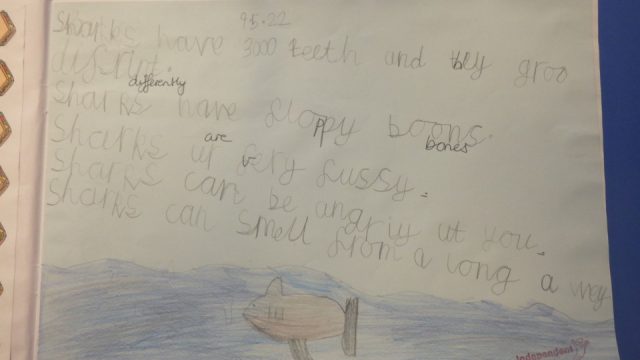 9.5.22
Sharks have 3000 teeth and thy groo
disrint.
differently
Sharks have floppy boons.
bones
Sharks ur very fussy.
are
Sharks can be angriy at you.
Sharks can smell from a long a way
Independent